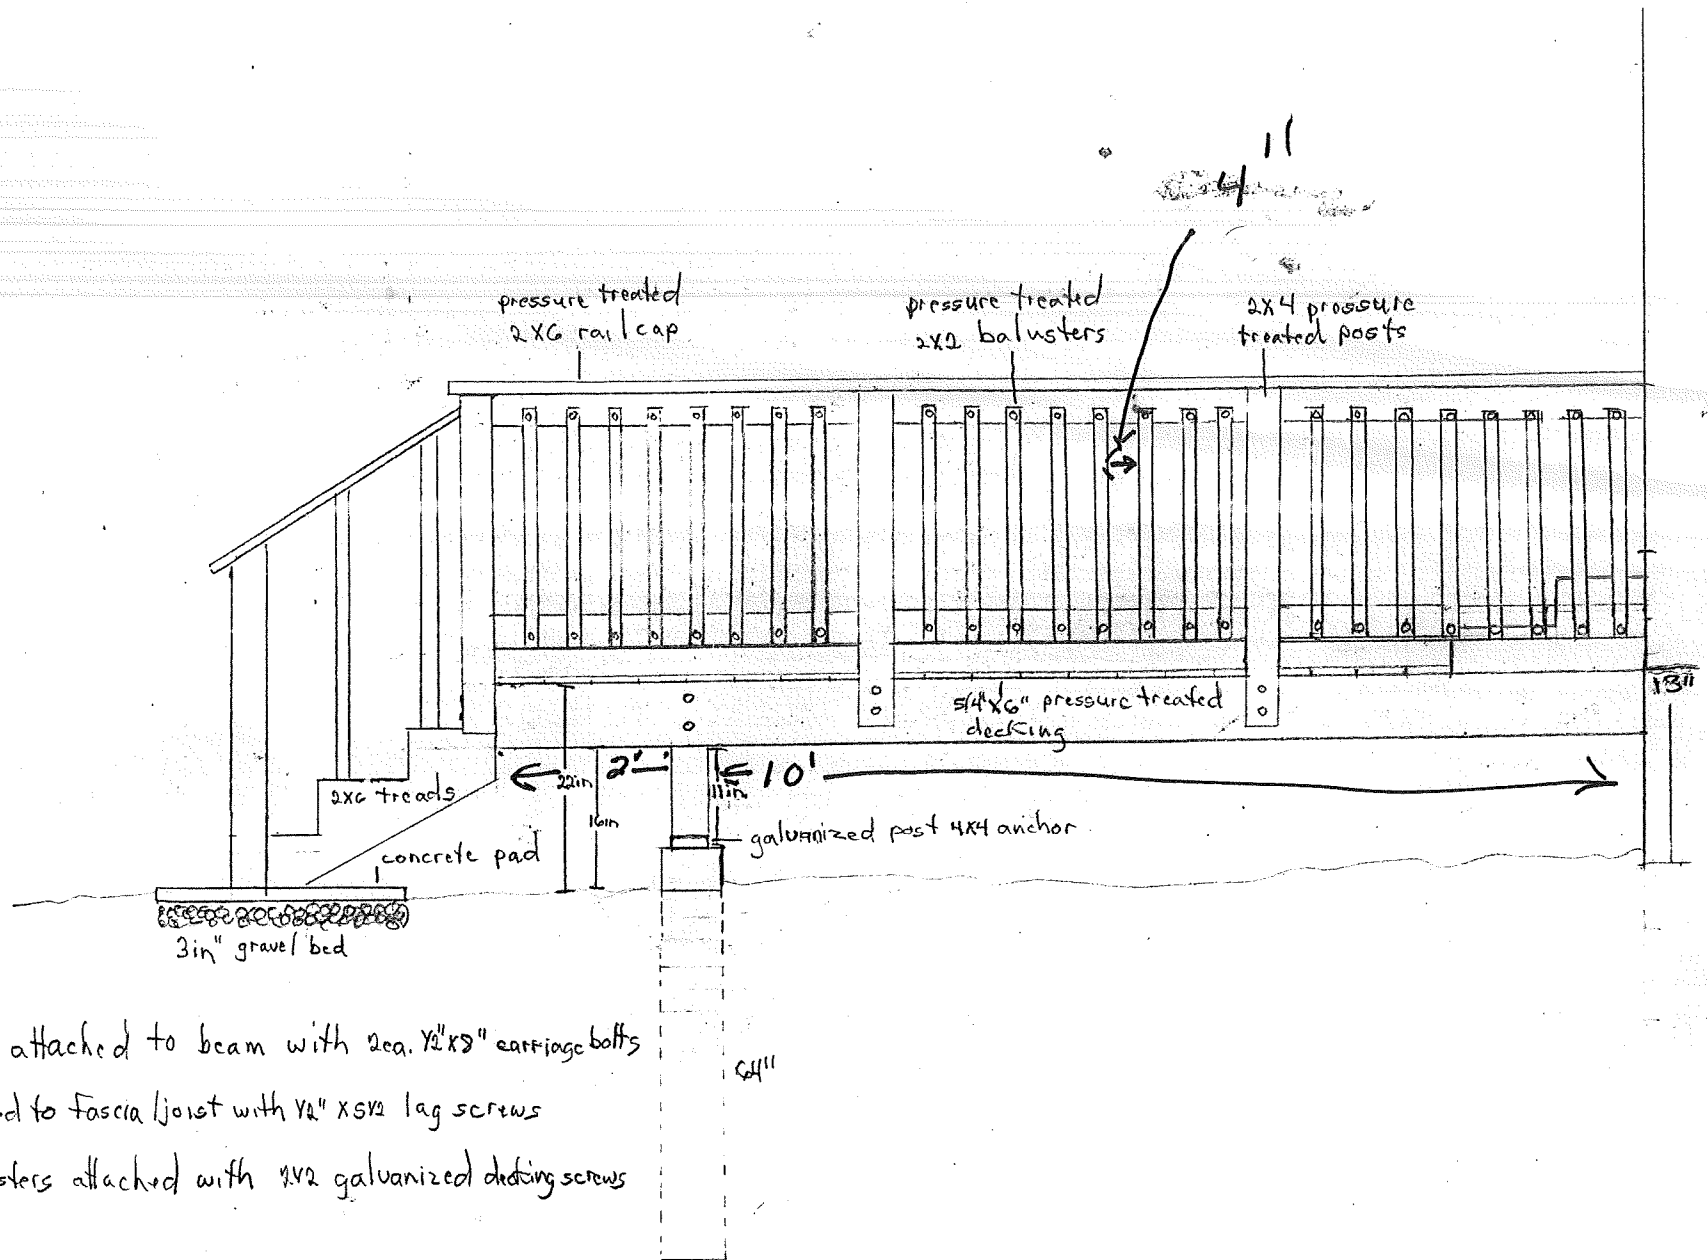 4"
pressure treated
2x6 railcap.
pressure treated
2x2 balusters
2x4 pressure
treated posts
13"
5/4"x6" pressure treated
decking
2'
10'
22in
11in
2x6 treads
16in
galvanized post 4x4 anchor
concrete pad
3in" gravel bed
attached to beam with 2ea. 1/2"x8" carriage bolts
64"
ed to fascia/joist with 1/2" x 5 1/2 lag screws
sters attached with 2 1/2 galvanized decking screws